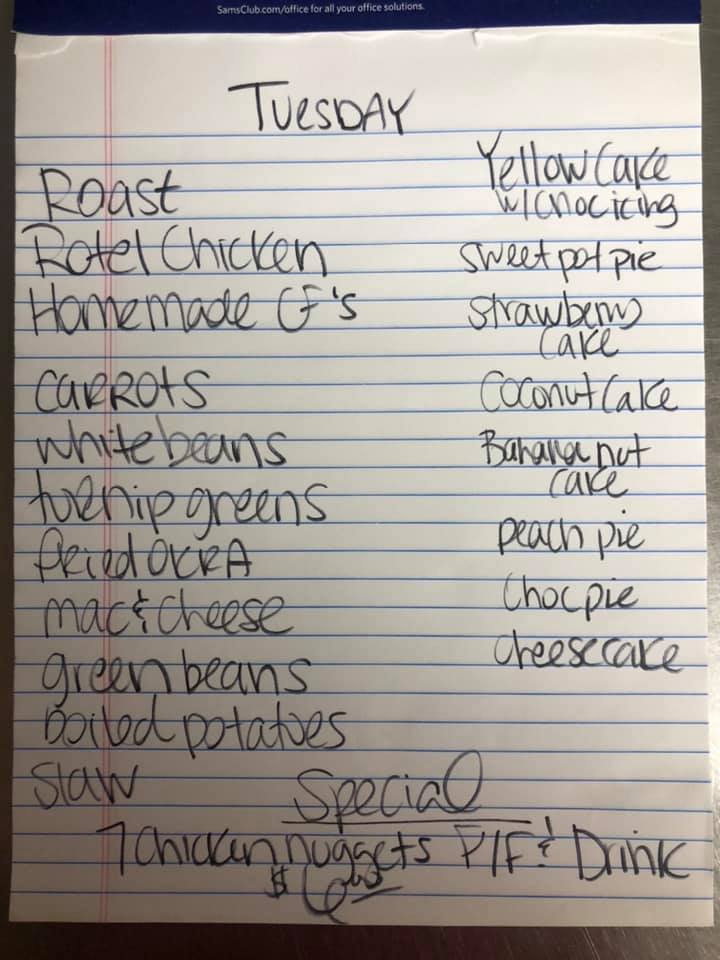 SamsClub.com/office for all your office solutions.
TUESDAY
Roast
Rotel Chicken
Homemade CF's
CARROTS
white beans
turnip greens
fried OKRA
mac & cheese
green beans
boiled potatoes
Slaw
Yellow Cake
w/ choc icing
sweet pot pie
strawberry
Cake
Coconut Cake
Banana nut
cake
peach pie
Choc pie
cheesecake
Special
7 Chicken nuggets F/F & Drink
$6.00